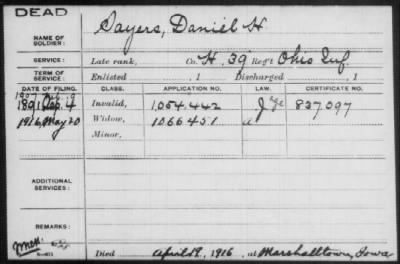 DEAD
NAME OF SOLDIER: Sayers, Daniel H.
SERVICE: Late rank, Co. H. 39 Reg't Ohio Inf.
TERM OF SERVICE: Enlisted , 1 Discharged , 1
DATE OF FILING. CLASS. APPLICATION NO. LAW. CERTIFICATE NO.
1907
1891 4 Invalid, 1,054.442 837097
1916, May 20 Widow, 1066451 a
Minor,
ADDITIONAL SERVICES:
REMARKS:
Died April 19, 1916, at Marshalltown, Iowa